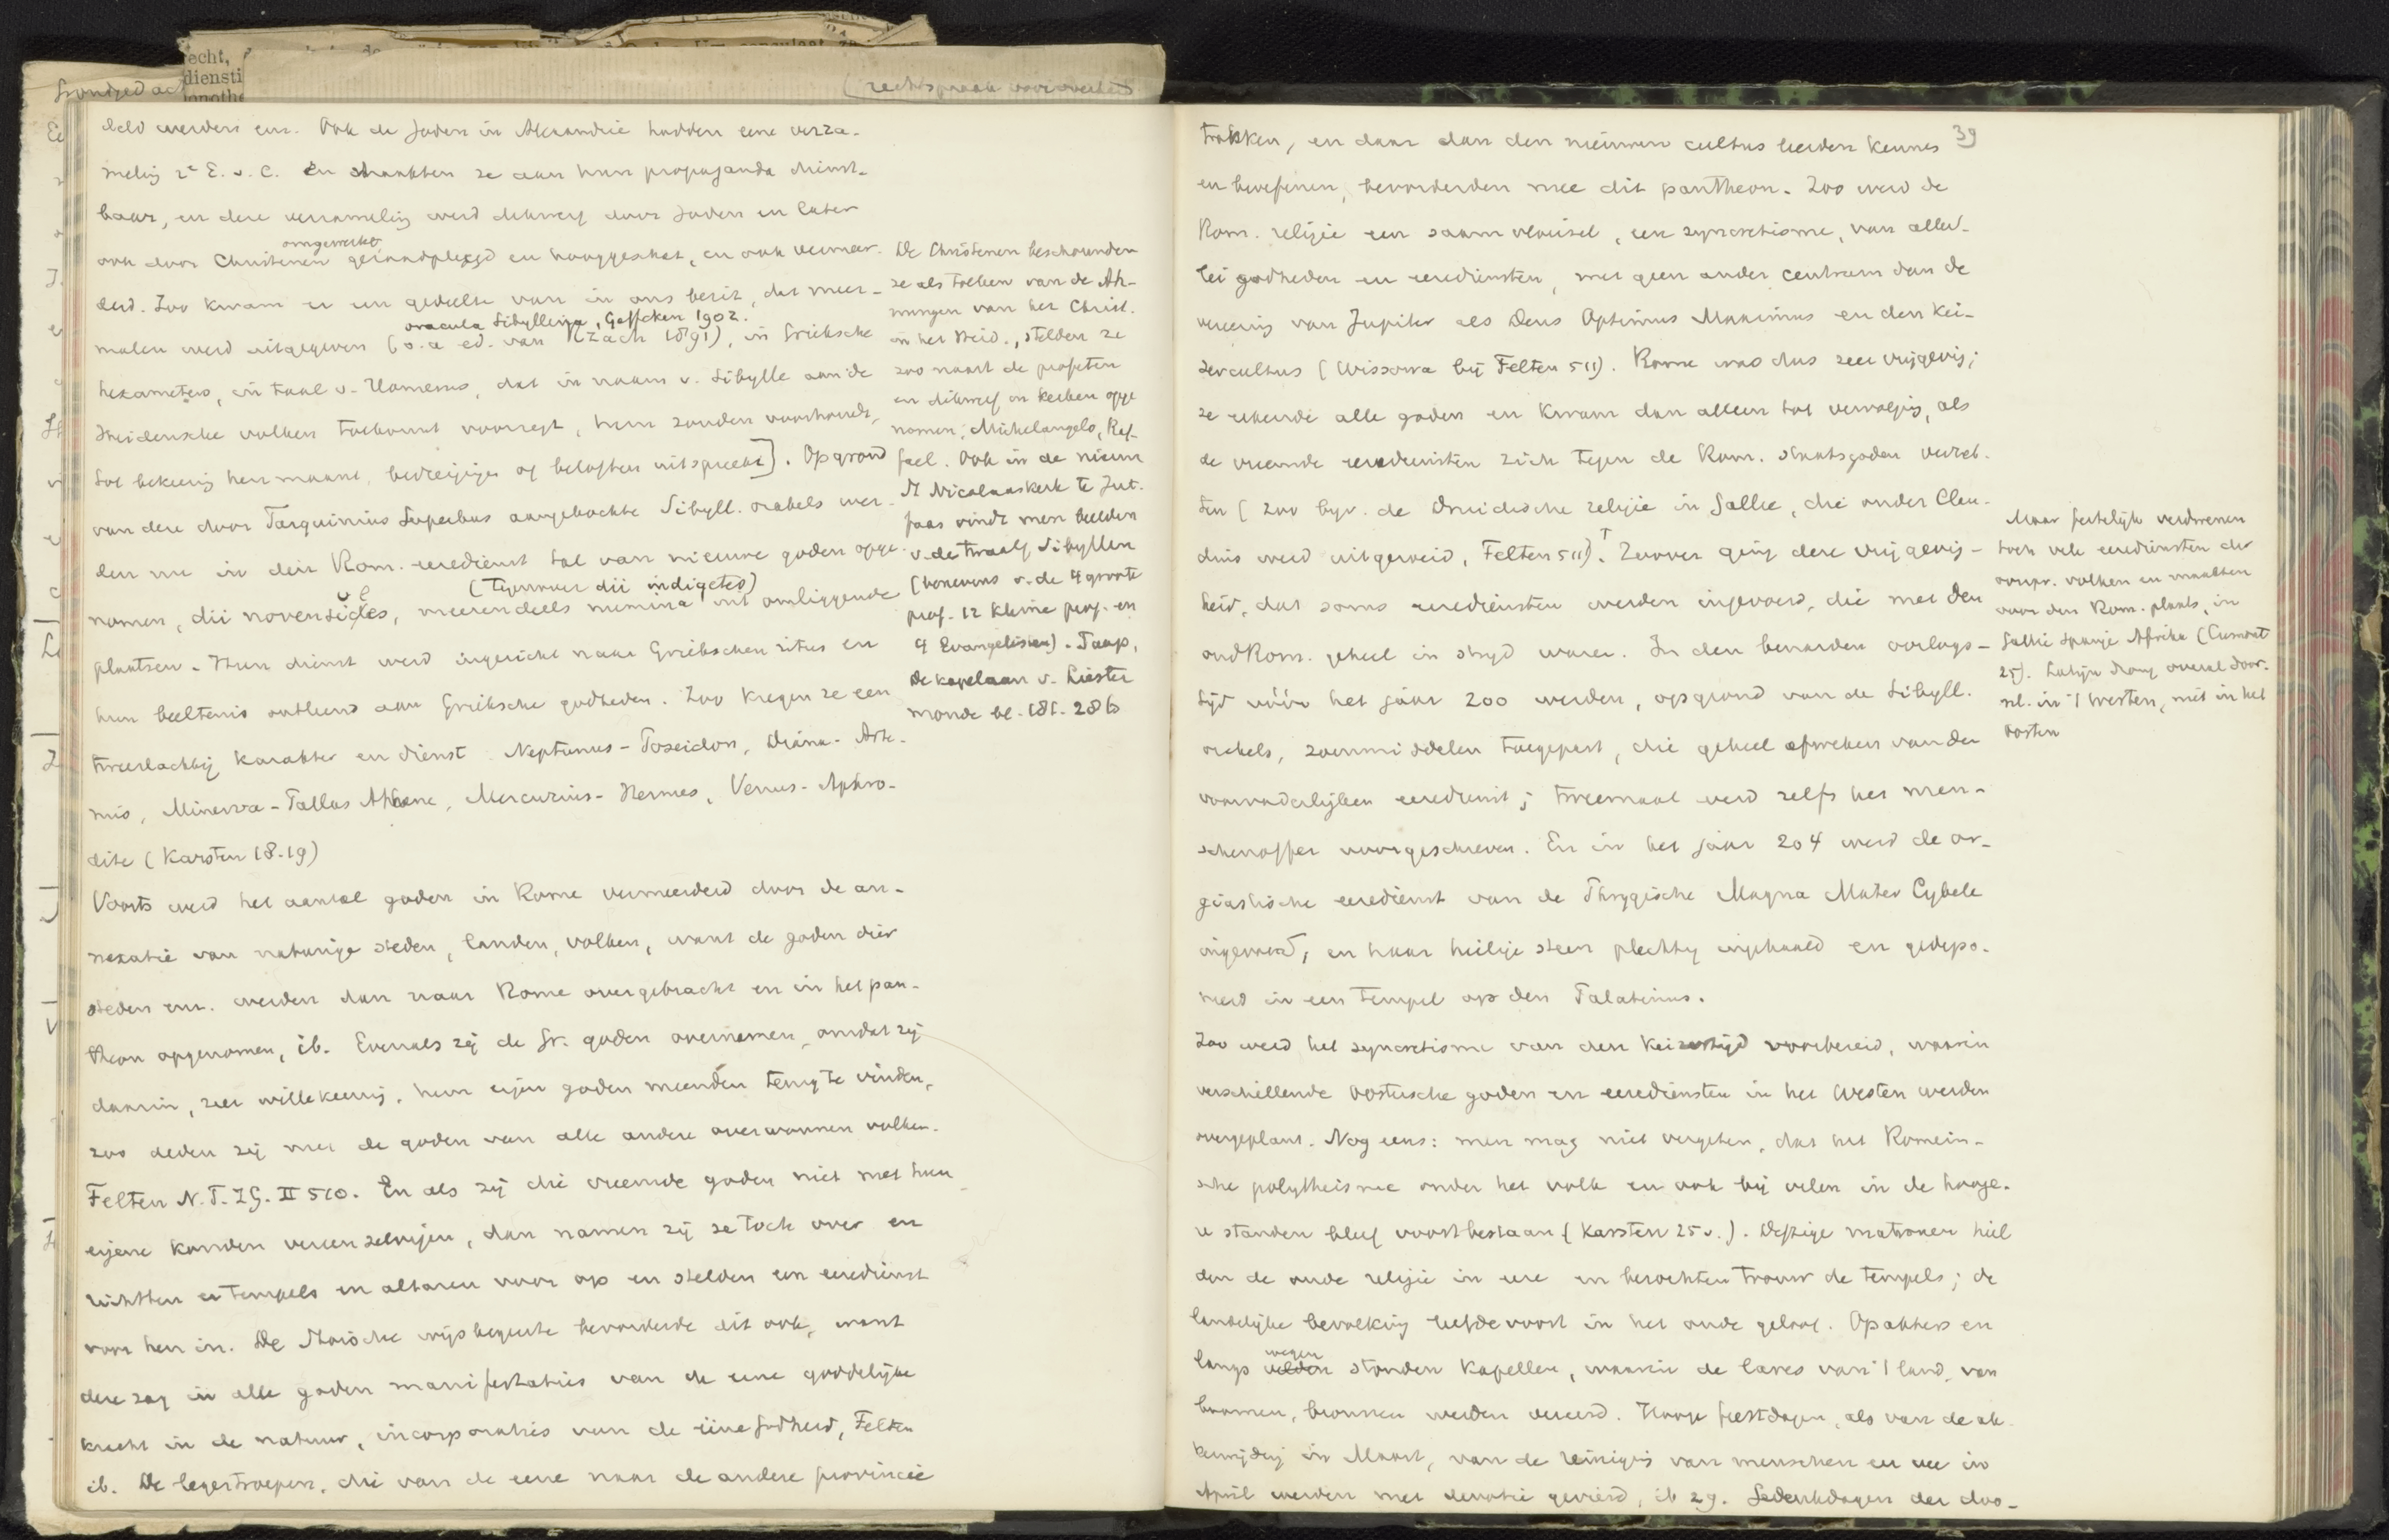 echt,
diensti
onothe
(rechtspraak voor overheid
deld werden enz. Ook de Joden in Alexandrië hadden eene verza-
meling 2e E. v. C. en maakten ze aan hun propaganda dienst-
baar, en deze verzameling werd dikwerf door Joden en later
ook door Christenen omgewerkt, geraadpleegd en hooggeschat, en ook vermeer-
derd. Zoo kwam er een gedeelte van in ons bezit, dat meer-
malen werd uitgegeven (o.a. ed. van Rzach 1891), in Grieksche
oracula Sibyllina, Geffcken 1902.
hexameters, in taal v. Homerus, dat in naam v. Sibylle aan de
Heidensche volken toekomst voorzegt, hun zonden voorhoudt,
tot bekeering hen maant, bedreigingen of beloften uitspreekt]. Op grond
van deze door Tarquinius Superbus aangekochte Sibyll. orakels wer-
den nu in den Rom. eeredienst tal van nieuwe goden opge-
nomen, dii novensides, (tegenover dii indigetes) meerendeels numina uit omliggende
plaatsen. Hun dienst werd ingericht naar Griekschen ritus en
hun beeltenis ontleend aan Grieksche godheden. Zoo kregen ze een
tweeslachtig karakter en dienst. Neptunus-Poseidon, Diana-Arte-
mis, Minerva-Pallas Athene, Mercurius-Hermes, Venus-Aphro-
dite (Karsten 18-19)
Voorts werd het aantal goden in Rome vermeerderd door de an-
nexatie van naburige steden, landen, volken, want de goden dier
steden enz. werden dan naar Rome overgebracht en in het pan-
theon opgenomen, ib. Evenals zij de Gr. goden overnemen, omdat zij
daarin, zeer willekeurig, hun eigen goden meenden terug te vinden,
zoo deden zij met de goden van alle andere overwonnen volken.
Felten N.T. ZG. II 510. En als zij die vreemde goden niet met hun
eigene konden vereenzelvigen, dan namen zij ze toch over en
richtten er tempels en altaren voor op en stelden een eeredienst
voor hen in. De Stoische wijsbegeerte bevorderde dit ook, want
deze zag in alle goden manifestaties van de eene goddelijke
kracht in de natuur, incorporaties van de eene Godheid, Felten
ib. De legertroepen, die van de eene naar de andere provincie
De Christenen beschouwden
ze als tolken van de Ah-
nungen van het Christ.
in het Heid., stelden ze
zoo naast de profeten
en dikwerf in kerken opge
nomen; Michelangelo, Raf-
fael. Ook in de nieuwe
St Nicolaaskerk te Jut-
faas vindt men beelden
v. de twaalf Sibyllen
(benevens v. de 4 groote
prof. 12 kleine prof. en
4 Evangelisten). Jaap,
De kapelaan v. Liester
monde bl. 181. 286
39
trokken, en daar dan den nieuwen cultus leerden kennen
en beoefenen, bevorderden mee dit pantheon. Zoo werd de
Rom. religie een saamvloeisel, een syncretisme, van aller-
lei godheden en eerediensten, met geen ander centrum dan de
vereering van Jupiter als Deus Optimus Maximus en den kei-
zercultus (Wissowa bij Felten 511). Rome was dus zeer vrijgevig;
ze erkende alle goden en kwam dan alleen tot vervolging, als
de vreemde eerediensten zich tegen de Rom. staatsgoden verzet-
ten (zoo bijv. de Druidische religie in Gallie, die onder Clau-
dius werd uitgeroeid, Felten 511). Zoover ging deze vrijgevig-
heid, dat soms eerediensten werden ingevoerd, die met den
oudRom. geheel in strijd waren. In den benarden oorlogs-
tijd vóór het jaar 200 werden, op grond van de Sibyll.
orakels, zoenmiddelen toegepast, die geheel afweken van den
voorvaderlijken eeredienst; tweemaal werd zelfs het men-
schenoffer voorgeschreven. En in het jaar 204 werd de or-
giastische eeredienst van de Phrygische Magna Mater Cybele
ingevoerd, en haar heilige steen plechtig ingehaald en gedepo-
neerd in een tempel op den Palatinus.
Zoo werd het syncretisme van den keizertijd voorbereid, waarin
verschillende Oostersche goden en eerediensten in het Westen werden
overgeplant. Nog eens: men mag niet vergeten, dat het Romein-
sche polytheisme onder het volk en ook bij velen in de hooge-
re standen bleef voortbestaan (Karsten 25 v.). Deftige matronen hiel
den de oude religie in eere en bezochten trouw de tempels; de
landelijke bevolking leefde voort in het oude geloof. Op akkers en
langs wegen stonden kapellen, waarin de lares van 't land, van
boomen, bronnen werden vereerd. Hooge feestdagen, als van de ak-
kerwijding in Maart, van de reiniging van menschen en vee in
April werden met devotie gevierd, ib 29. Gedenkdagen der doo-
Maar feitelijk verdwenen
toch vele eerediensten der
overw. volken en maakten
voor den Rom. plaats, in
Gallie Spanje Afrika (Cumont
25). Latijn drong overal door.
nl. in 't Westen, niet in het
Oosten